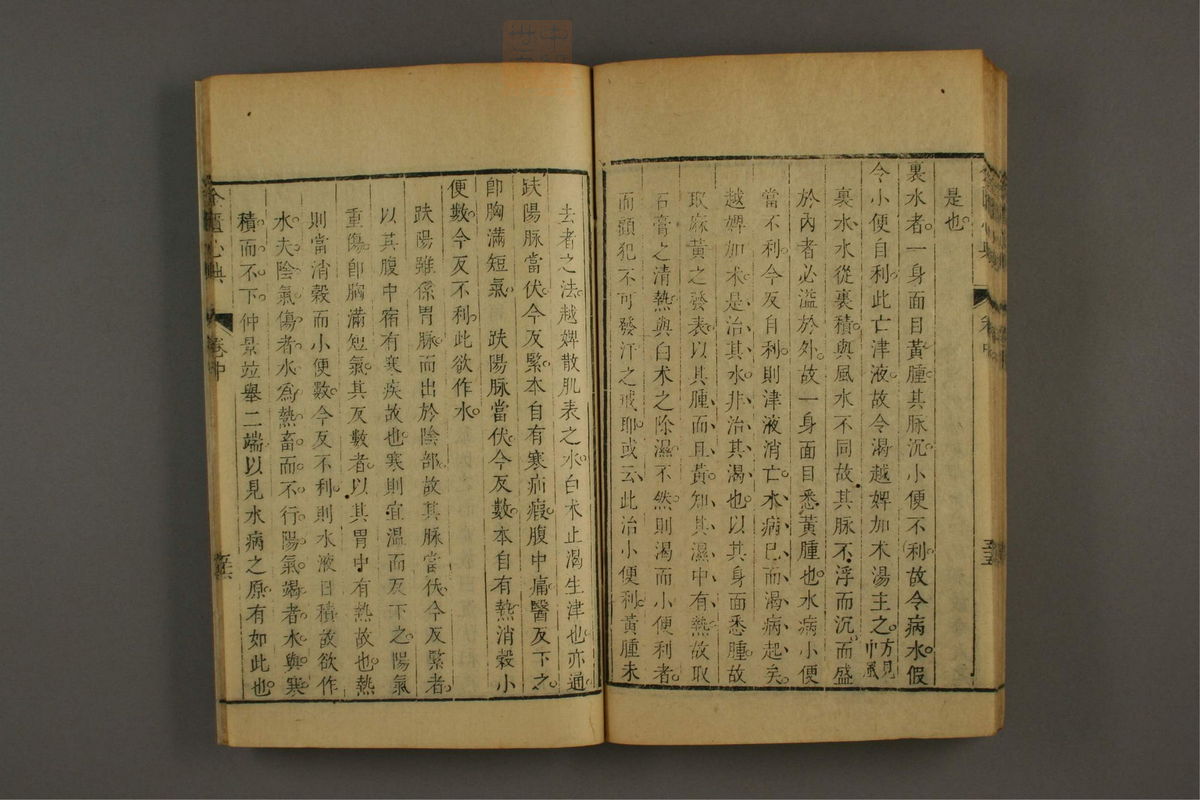 是也
裏水者一身面目黃腫其脈沉小便不利故令病水假
令小便自利此亡津液故令渴越婢加术湯主之方見中風
裏水水從裏積與風水不同故其脈不浮而沉而盛
於內者必溢於外故一身面目悉黃腫也水病小便
當不利今反自利則津液消亡水病已而渴病起矣
越婢加术是治其水非治其渴也以其身面悉腫故
取麻黃之發表以其腫而且黃知其濕中有熱故取
石膏之清熱與白术之除濕不然則渴而小便利者
而顧犯不可發汗之戒耶或云此治小便利黃腫未
去者之法越婢散肌表之水白术止渴生津也亦通
趺陽脈當伏今反緊本自有寒疝瘕腹中痛醫反下之
卽胸滿短氣 趺陽脈當伏今反數本自有熱消穀小
便數今反不利此欲作水
趺陽雖係胃脈而出於陰部故其脈當伏今反緊者
以其腹中宿有寒疾故也寒則宜溫而反下之陽氣
重傷卽胸滿短氣其反數者以其胃中有熱故也熱
則當消穀而小便數今反不利則水液日積故欲作
水夫陰氣傷者水爲熱畜而不行陽氣竭者水與寒
積而不下仲景竝舉二端以見水病之原有如此也
金匱心典 卷中